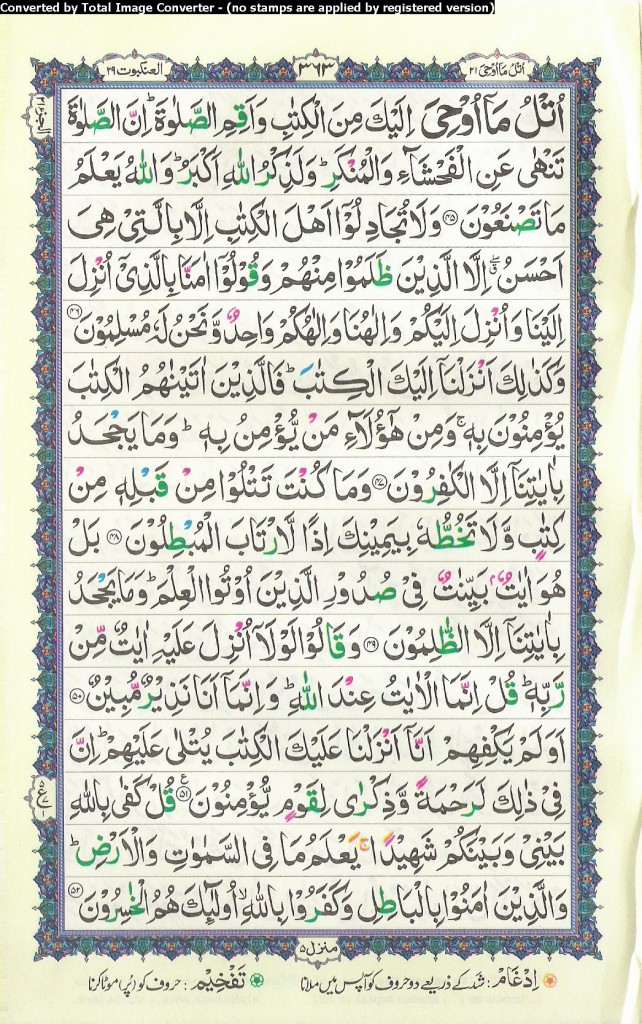 Converted by Total Image Converter - (no stamps are applied by registered version)
اتل ما اوحی ۲۱
۳۶۳
العنکبوت ۲۹
اُتْلُ مَاۤ اُوْحِیَ اِلَیْكَ مِنَ الْكِتٰبِ وَاَقِمِ الصَّلٰوةَ ؕ اِنَّ الصَّلٰوةَ
تَنْهٰی عَنِ الْفَحْشَآءِ وَالْمُنْكَرِ ؕ وَلَذِكْرُ اللّٰهِ اَكْبَرُ ؕ وَاللّٰهُ یَعْلَمُ
مَا تَصْنَعُوْنَ ﴿۴۵﴾ وَلَا تُجَادِلُوْۤا اَهْلَ الْكِتٰبِ اِلَّا بِالَّتِیْ هِیَ
اَحْسَنُ ۖ اِلَّا الَّذِیْنَ ظَلَمُوْا مِنْهُمْ وَقُوْلُوْۤا اٰمَنَّا بِالَّذِیْۤ اُنْزِلَ
اِلَیْنَا وَاُنْزِلَ اِلَیْكُمْ وَاِلٰهُنَا وَاِلٰهُكُمْ وَاحِدٌ وَّنَحْنُ لَهٗ مُسْلِمُوْنَ ﴿۴۶﴾
وَكَذٰلِكَ اَنْزَلْنَاۤ اِلَیْكَ الْكِتٰبَ ؕ فَالَّذِیْنَ اٰتَیْنٰهُمُ الْكِتٰبَ
یُؤْمِنُوْنَ بِهٖ ۚ وَمِنْ هٰۤؤُلَآءِ مَنْ یُّؤْمِنُ بِهٖ ؕ وَمَا یَجْحَدُ
بِاٰیٰتِنَاۤ اِلَّا الْكٰفِرُوْنَ ﴿۴۷﴾ وَمَا كُنْتَ تَتْلُوْا مِنْ قَبْلِهٖ مِنْ
كِتٰبٍ وَّلَا تَخُطُّهٗ بِیَمِیْنِكَ اِذًا لَّارْتَابَ الْمُبْطِلُوْنَ ﴿۴۸﴾ بَلْ
هُوَ اٰیٰتٌۢ بَیِّنٰتٌ فِیْ صُدُوْرِ الَّذِیْنَ اُوْتُوا الْعِلْمَ ؕ وَمَا یَجْحَدُ
بِاٰیٰتِنَاۤ اِلَّا الظّٰلِمُوْنَ ﴿۴۹﴾ وَقَالُوْا لَوْلَاۤ اُنْزِلَ عَلَیْهِ اٰیٰتٌ مِّنْ
رَّبِّهٖ ؕ قُلْ اِنَّمَا الْاٰیٰتُ عِنْدَ اللّٰهِ ؕ وَاِنَّمَاۤ اَنَا نَذِیْرٌ مُّبِیْنٌ ﴿۵۰﴾
اَوَلَمْ یَكْفِهِمْ اَنَّاۤ اَنْزَلْنَا عَلَیْكَ الْكِتٰبَ یُتْلٰی عَلَیْهِمْ ؕ اِنَّ
فِیْ ذٰلِكَ لَرَحْمَةً وَّذِكْرٰی لِقَوْمٍ یُّؤْمِنُوْنَ ﴿۵۱﴾ ع قُلْ كَفٰی بِاللّٰهِ
بَیْنِیْ وَبَیْنَكُمْ شَهِیْدًا ۚ یَعْلَمُ مَا فِی السَّمٰوٰتِ وَالْاَرْضِ ؕ
وَالَّذِیْنَ اٰمَنُوْا بِالْبَاطِلِ وَكَفَرُوْا بِاللّٰهِ ۙ اُولٰٓئِكَ هُمُ الْخٰسِرُوْنَ ﴿۵۲﴾
منزل ۵
اِدْغَام : شد کے ذریعے دو حروف کو آپس میں ملانا
تَفْخِیْم : حروف کو (پُر) موٹا کرنا